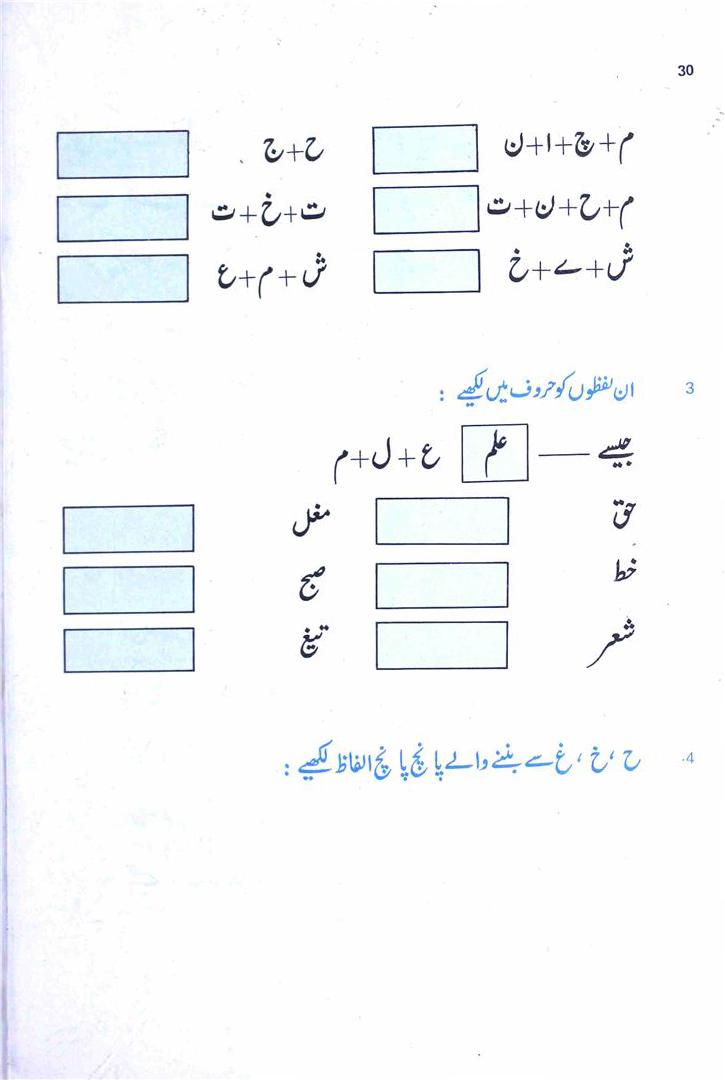 30
م+چ+ا+ن ح+ج
م+ح+ن+ت ت+خ+ت
ش+ے+خ ش+م+ع
3 ان لفظوں کو حروف میں لکھیے :
جیسے —— علم ع+ل+م
حق مغل
خط صبح
شعر تیغ
4. ح ، خ ، غ سے بننے والے پانچ پانچ الفاظ لکھیے :